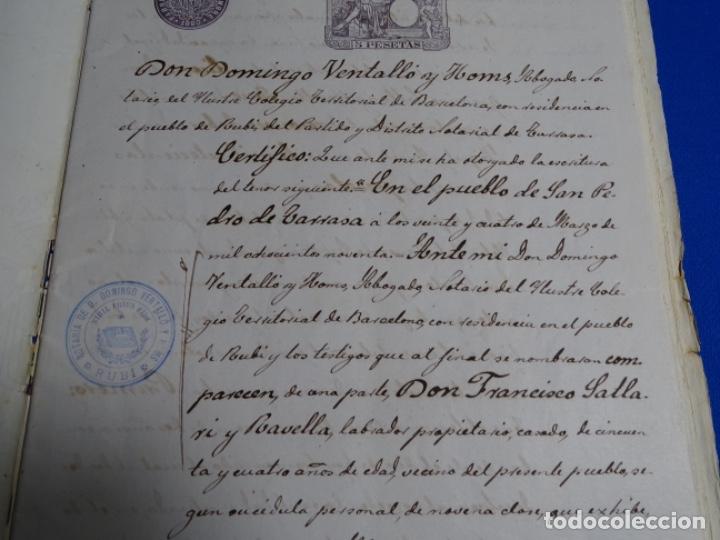 1890
5 PESETAS
Don Domingo Ventalló y Homs, Abogado No-
tario del Ilustre Colegio Territorial de Barcelona, con residencia en
el pueblo de Rubí, del Partido y Distrito Notarial de Tarrasa.
Certifico: Que ante mi se ha otorgado la escritura
del tenor siguiente.= "En el pueblo de San Pe-
dro de Tarrasa á los veinte y cuatro de Marzo de
mil ochocientos noventa.= Ante mi Don Domingo
Ventalló y Homs, Abogado, Notario del Ilustre Cole-
gio Territorial de Barcelona, con residencia en el pueblo
de Rubí y los testigos que al final se nombraran com-
parecen, de una parte, Don Francisco Salla-
ri y Ravella, labrador propietario, casado, de cincuen-
ta y cuatro años de edad, vecino del presente pueblo, se-
gun su cédula personal, de novena clase, que exhibe,
NOTARIA DE D. DOMINGO VENTALLÓ Y HOMS
NIHIL PRIUS FIDE
RUBÍ
todocoleccion